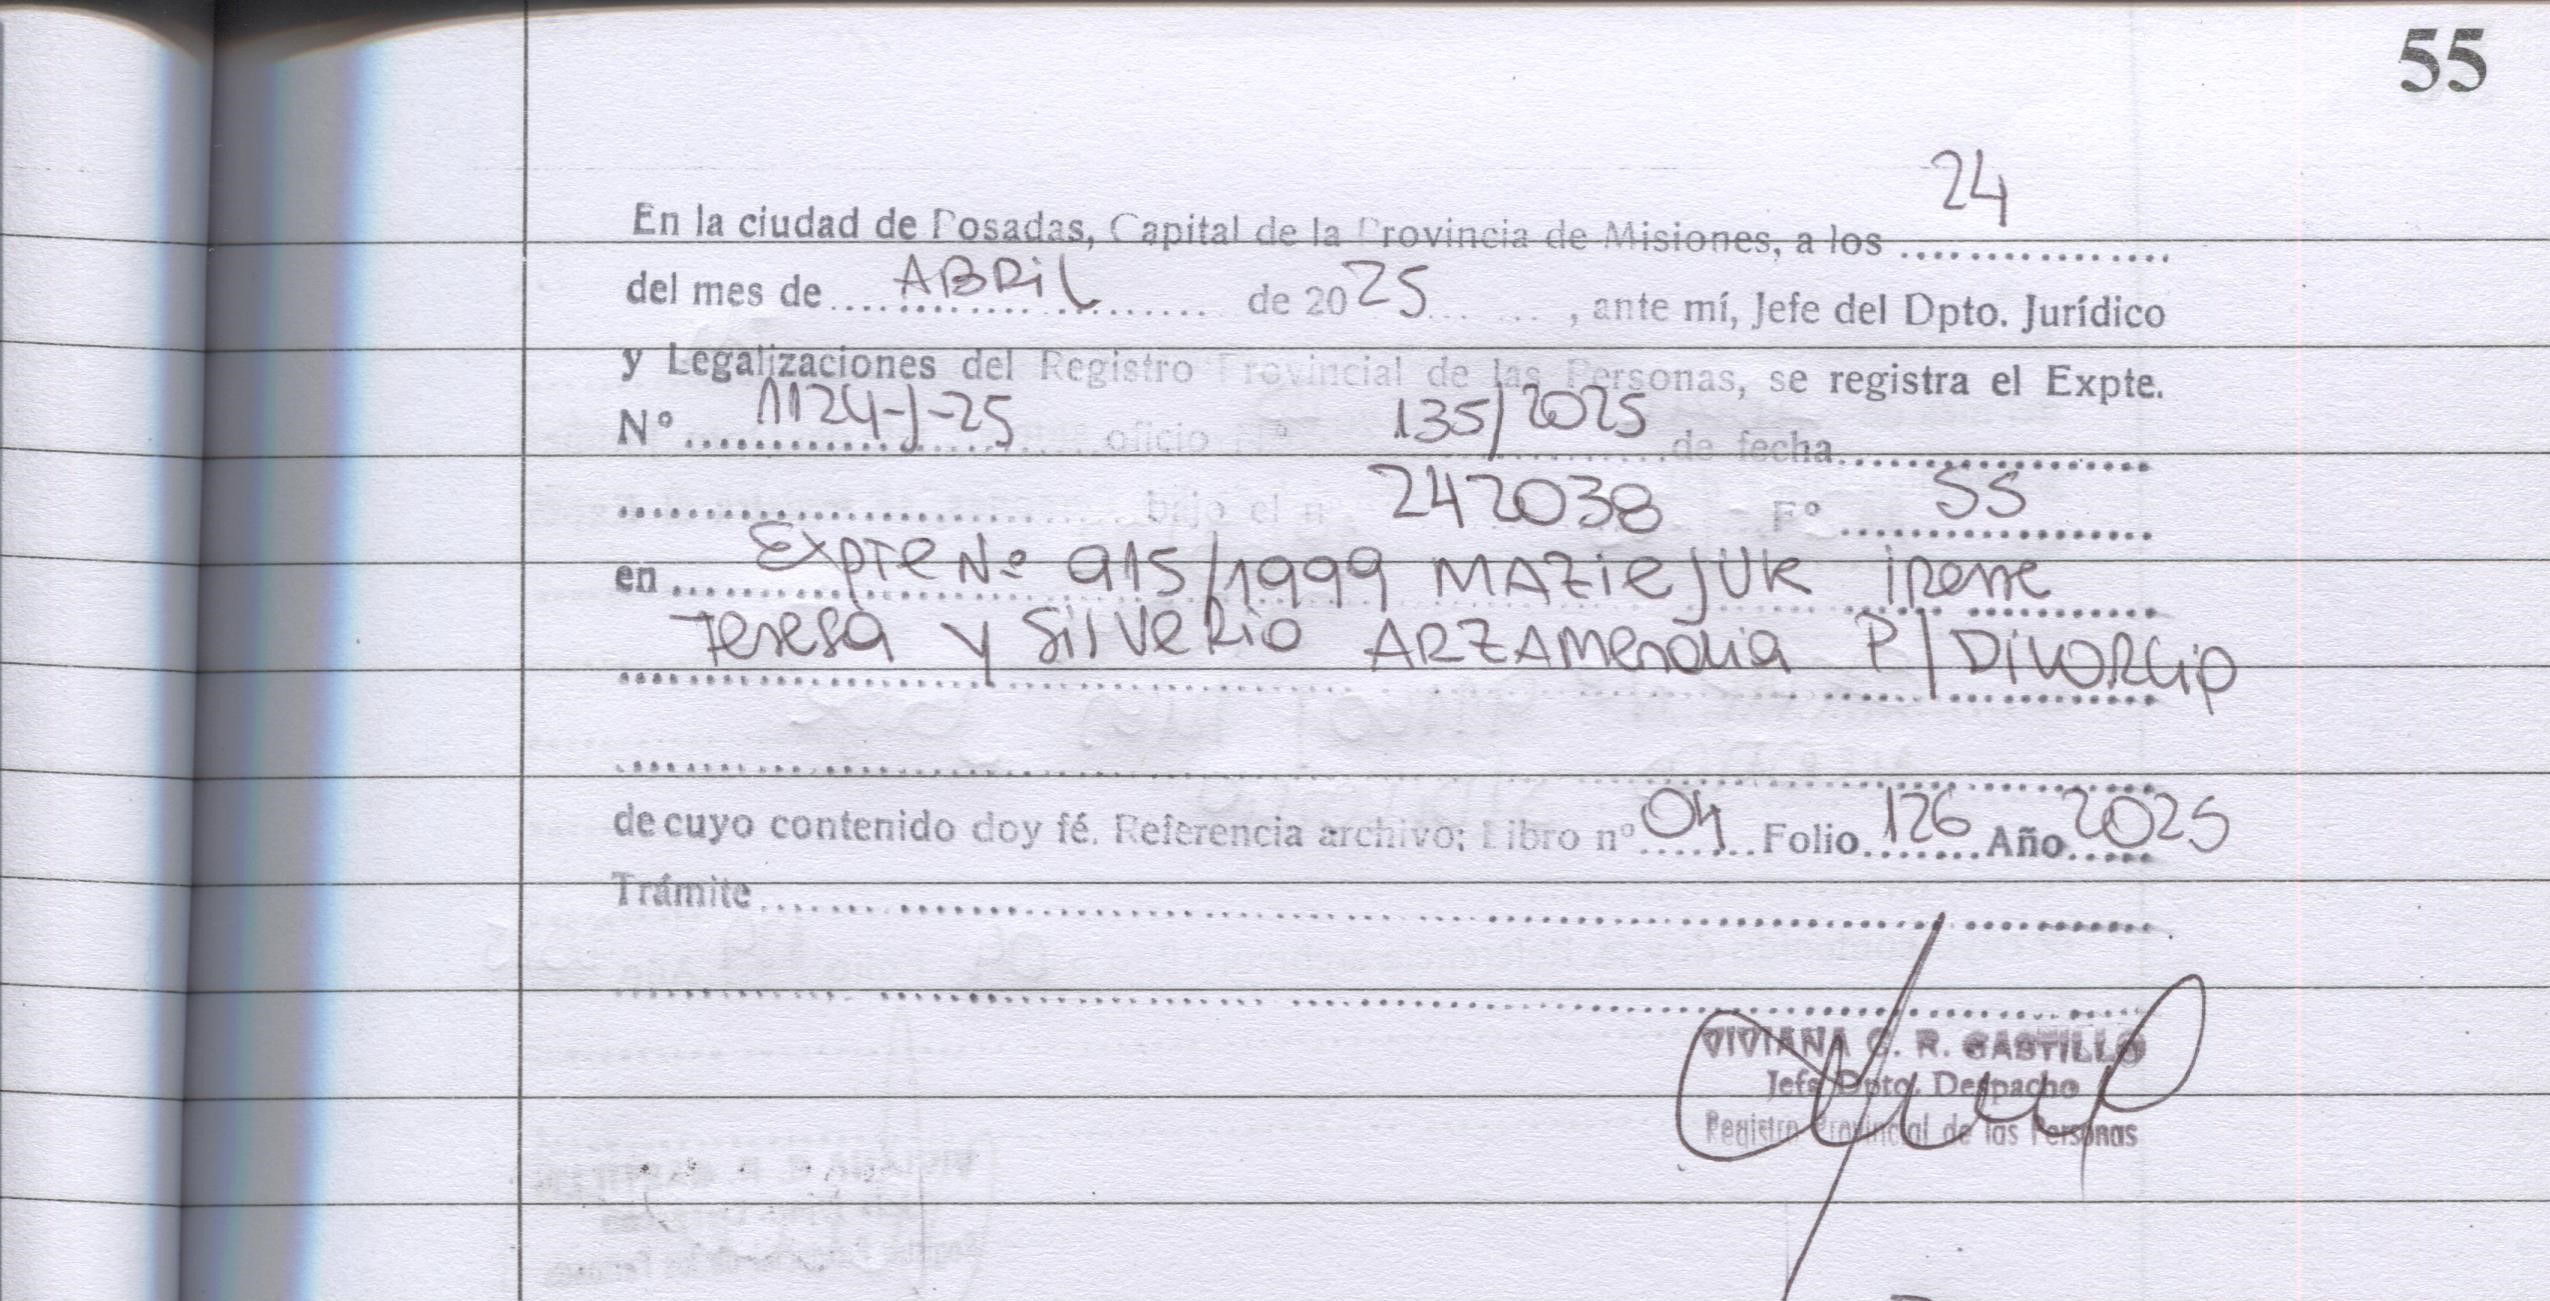 55
24
En la ciudad de Posadas, Capital de la Provincia de Misiones, a los ................
del mes de ..... ABRIL ..... de 2025 ....... , ante mí, Jefe del Dpto. Jurídico
y Legalizaciones del Registro Provincial de las Personas, se registra el Expte.
Nº ..... 1124-J-25 ..... oficio Nº ..... 135/2025 ..... de fecha ....................
.................... bajo el n 242038 Fº ..... 55 .....
en ..... Expte Nº 915/1999 MAZIEJUK Irene
Teresa y Silverio ARZAMENDIA P/ DIVORCIO
....................
de cuyo contenido doy fé. Referencia archivo: Libro nº 04 Folio 126 Año 2025
Trámite ....................
....................
VIVIANA C. R. CASTILLO
Jefe Dpto. Despacho
Registro Provincial de las Personas